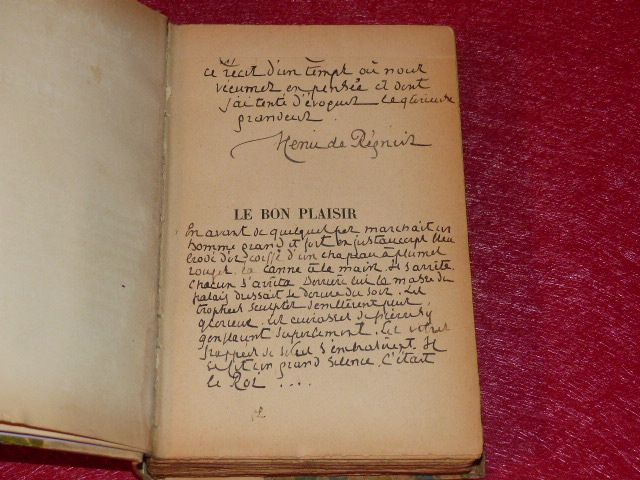 ce récit d'un temps où nous
vécumes en pensée et dont
j'ai tenté d'évoquer la glorieuse
grandeur.
Henri de Régnier
LE BON PLAISIR
En avant de quelques pas marchait un
homme grand et fort en justaucorps bleu
brodé d'or, coiffé d'un chapeau à plumes
rouges, la canne à la main. Il s'arrêta.
Chacun s'arrêta. Derrière lui la masse du
palais dressait sa dorure du soir. Les
trophées sculptés semblèrent plus
glorieux. Les cuirasses de pierre s'y
gonflaient superbement. Les vitres
frappées de soleil s'embrasèrent. Il
se fit un grand silence. C'était
le Roi ....